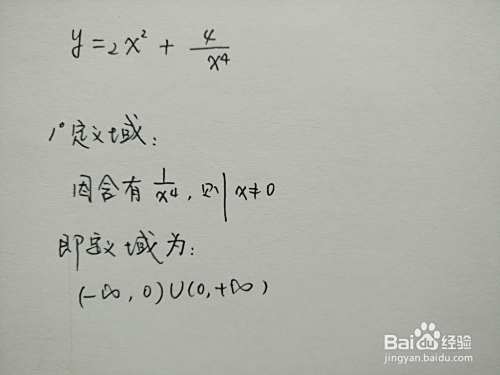 y=2x²+4/x⁴
1°定义域：
因含有1/x⁴，则x≠0
即定义域为：
(-∞,0)∪(0,+∞)
Baidu经验
jingyan.baidu.com